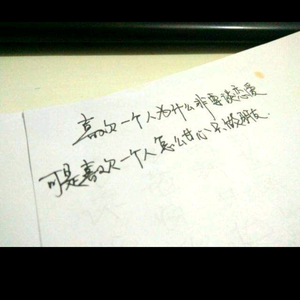 喜欢一个人为什么非要谈恋爱
可是喜欢一个人怎么甘心只做朋友.